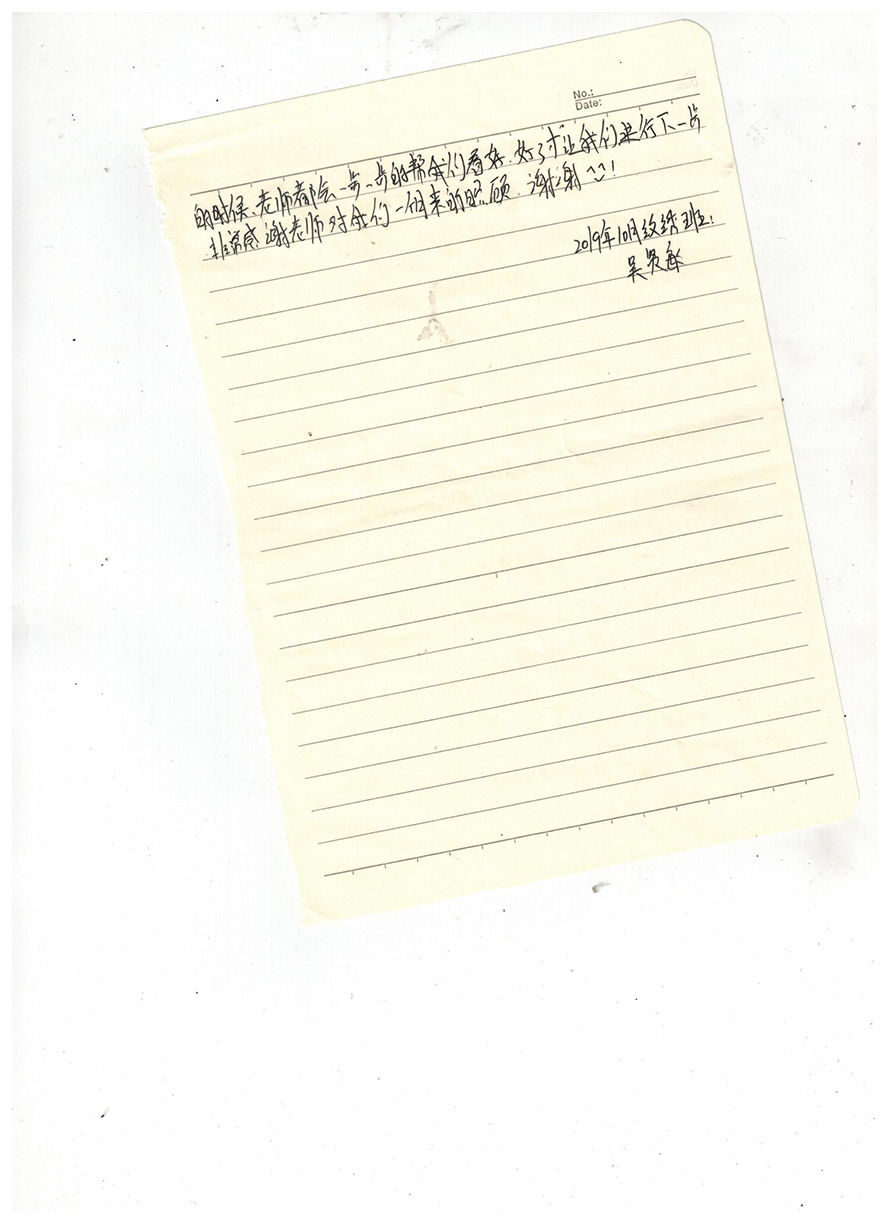 No.:
Date:
的时候、老师都会一步一步的帮我们看好、好了才让我们进行下一步
非常感谢老师对我们一个月来的照顾、谢谢！
2019年10月纹绣班：
吴贤敏